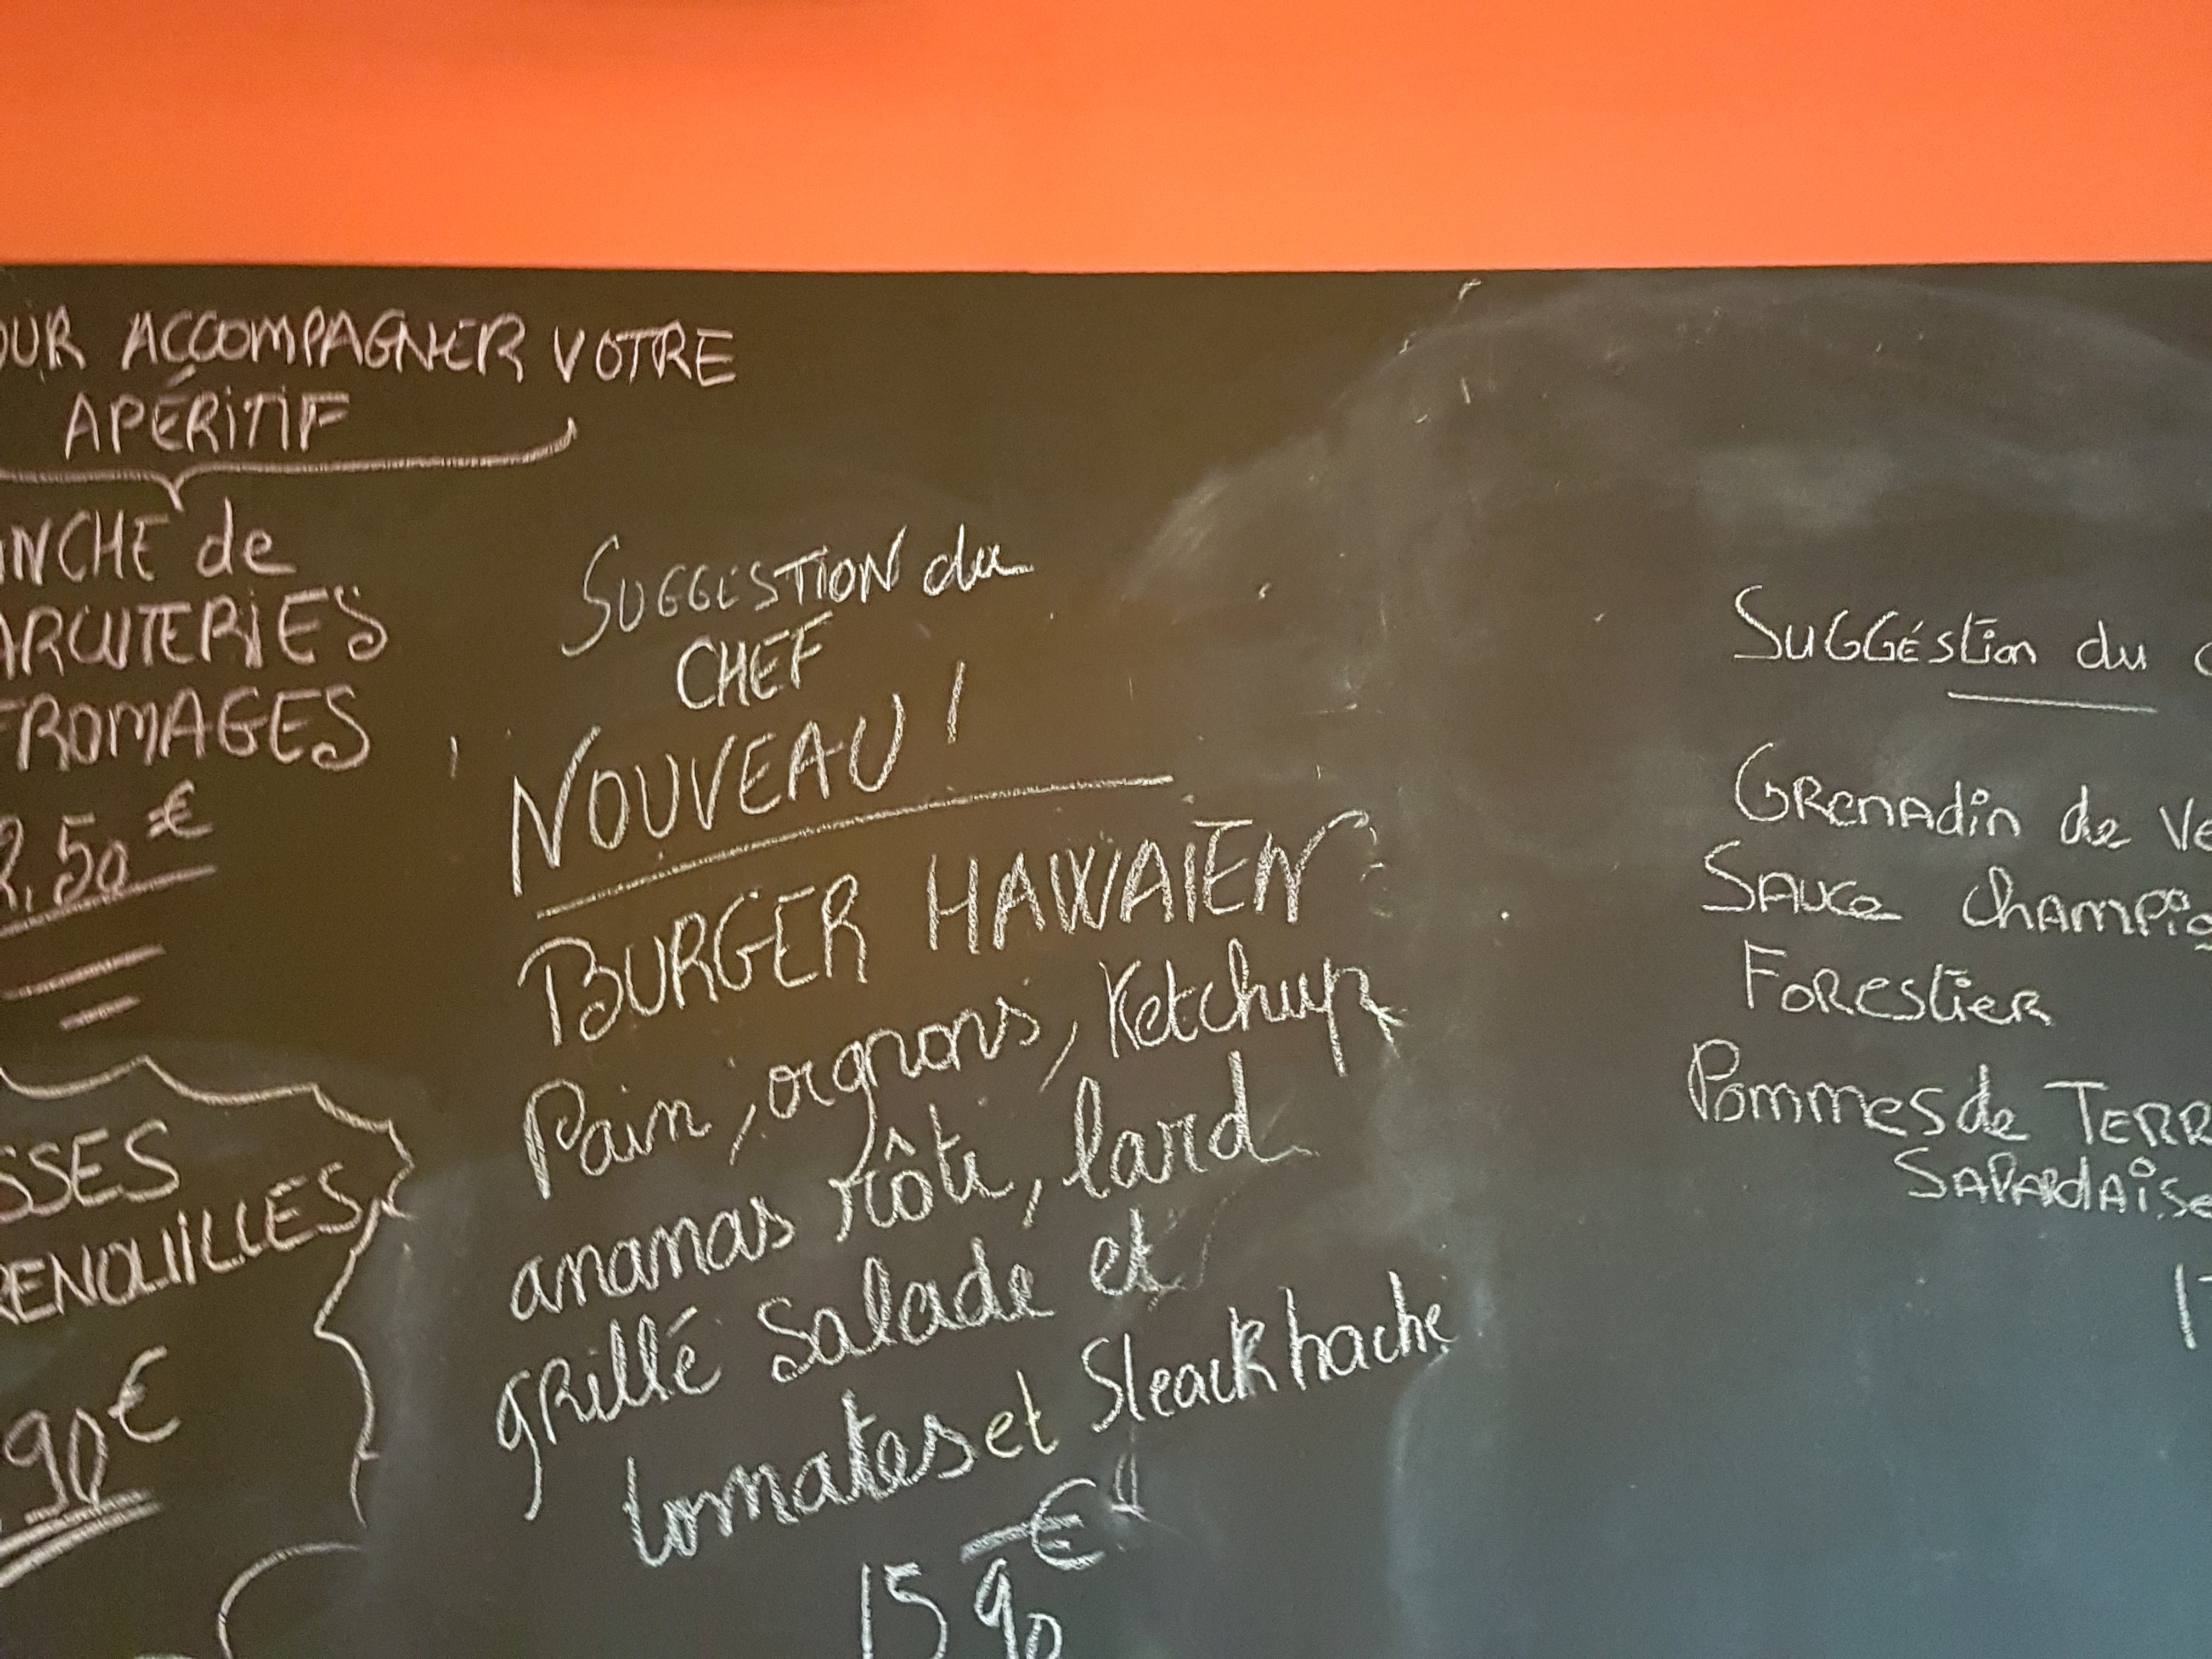 OUR ACCOMPAGNER VOTRE
APÉRITIF
ANCHE de
ARCUTERIES
FROMAGES
2,50€
SSES
RENOUILLES
90€
SUGGESTION du
CHEF
NOUVEAU!
BURGER HAWAIEN
Pain, oignons, Ketchup
ananas rôti, lard
grillé Salade et
tomates et Steack haché
15€90
SUGGéstion du c
GRenAdin de Ve
SAuce ChAmpig
FoRestieR
Pommes de TERR
SARARdAise